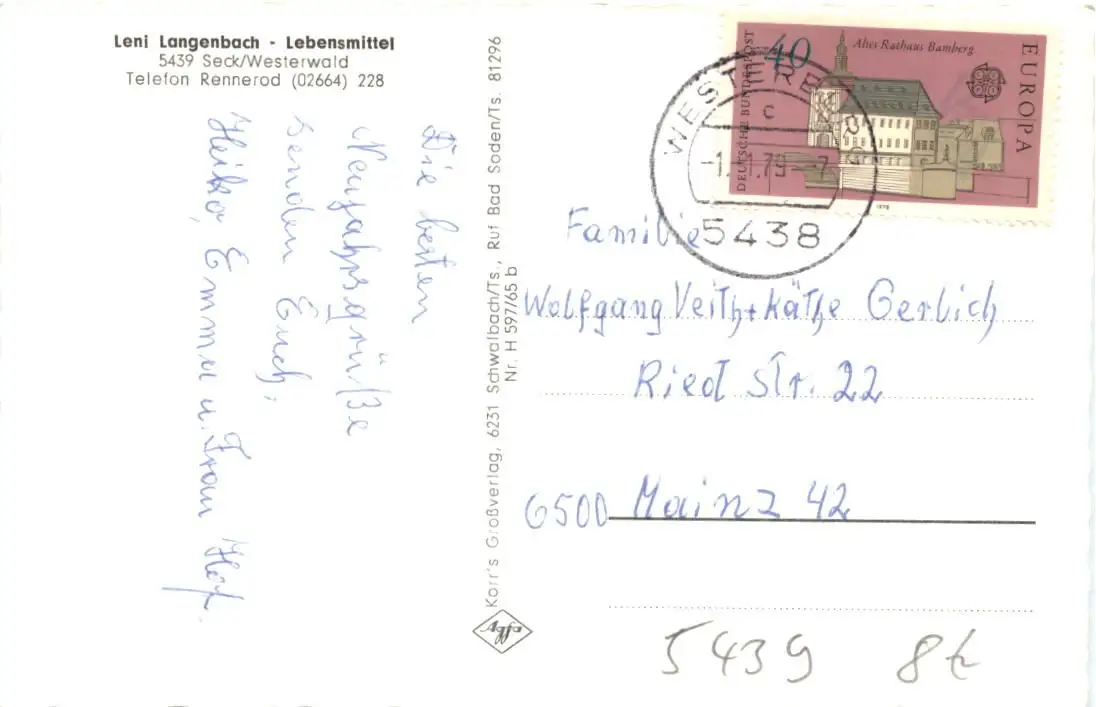 Leni Langenbach - Lebensmittel
5439 Seck/Westerwald
Telefon Rennerod (02664) 228
Die besten
Neujahrsgrüße
senden Euch,
Heiko, Emma u. Frau Hof
Korr's Großverlag, 6231 Schwalbach/Ts., Ruf Bad Soden/Ts. 81296
Nr. H 597/65 b
40
Altes Rathaus Bamberg
EUROPA
DEUTSCHE BUNDESPOST
1978
WESTERBURG
c
5438
Familie
Wolfgang Veith + Käthe Gerlich
Ried Str. 22
6500 Mainz 42
5439 8t